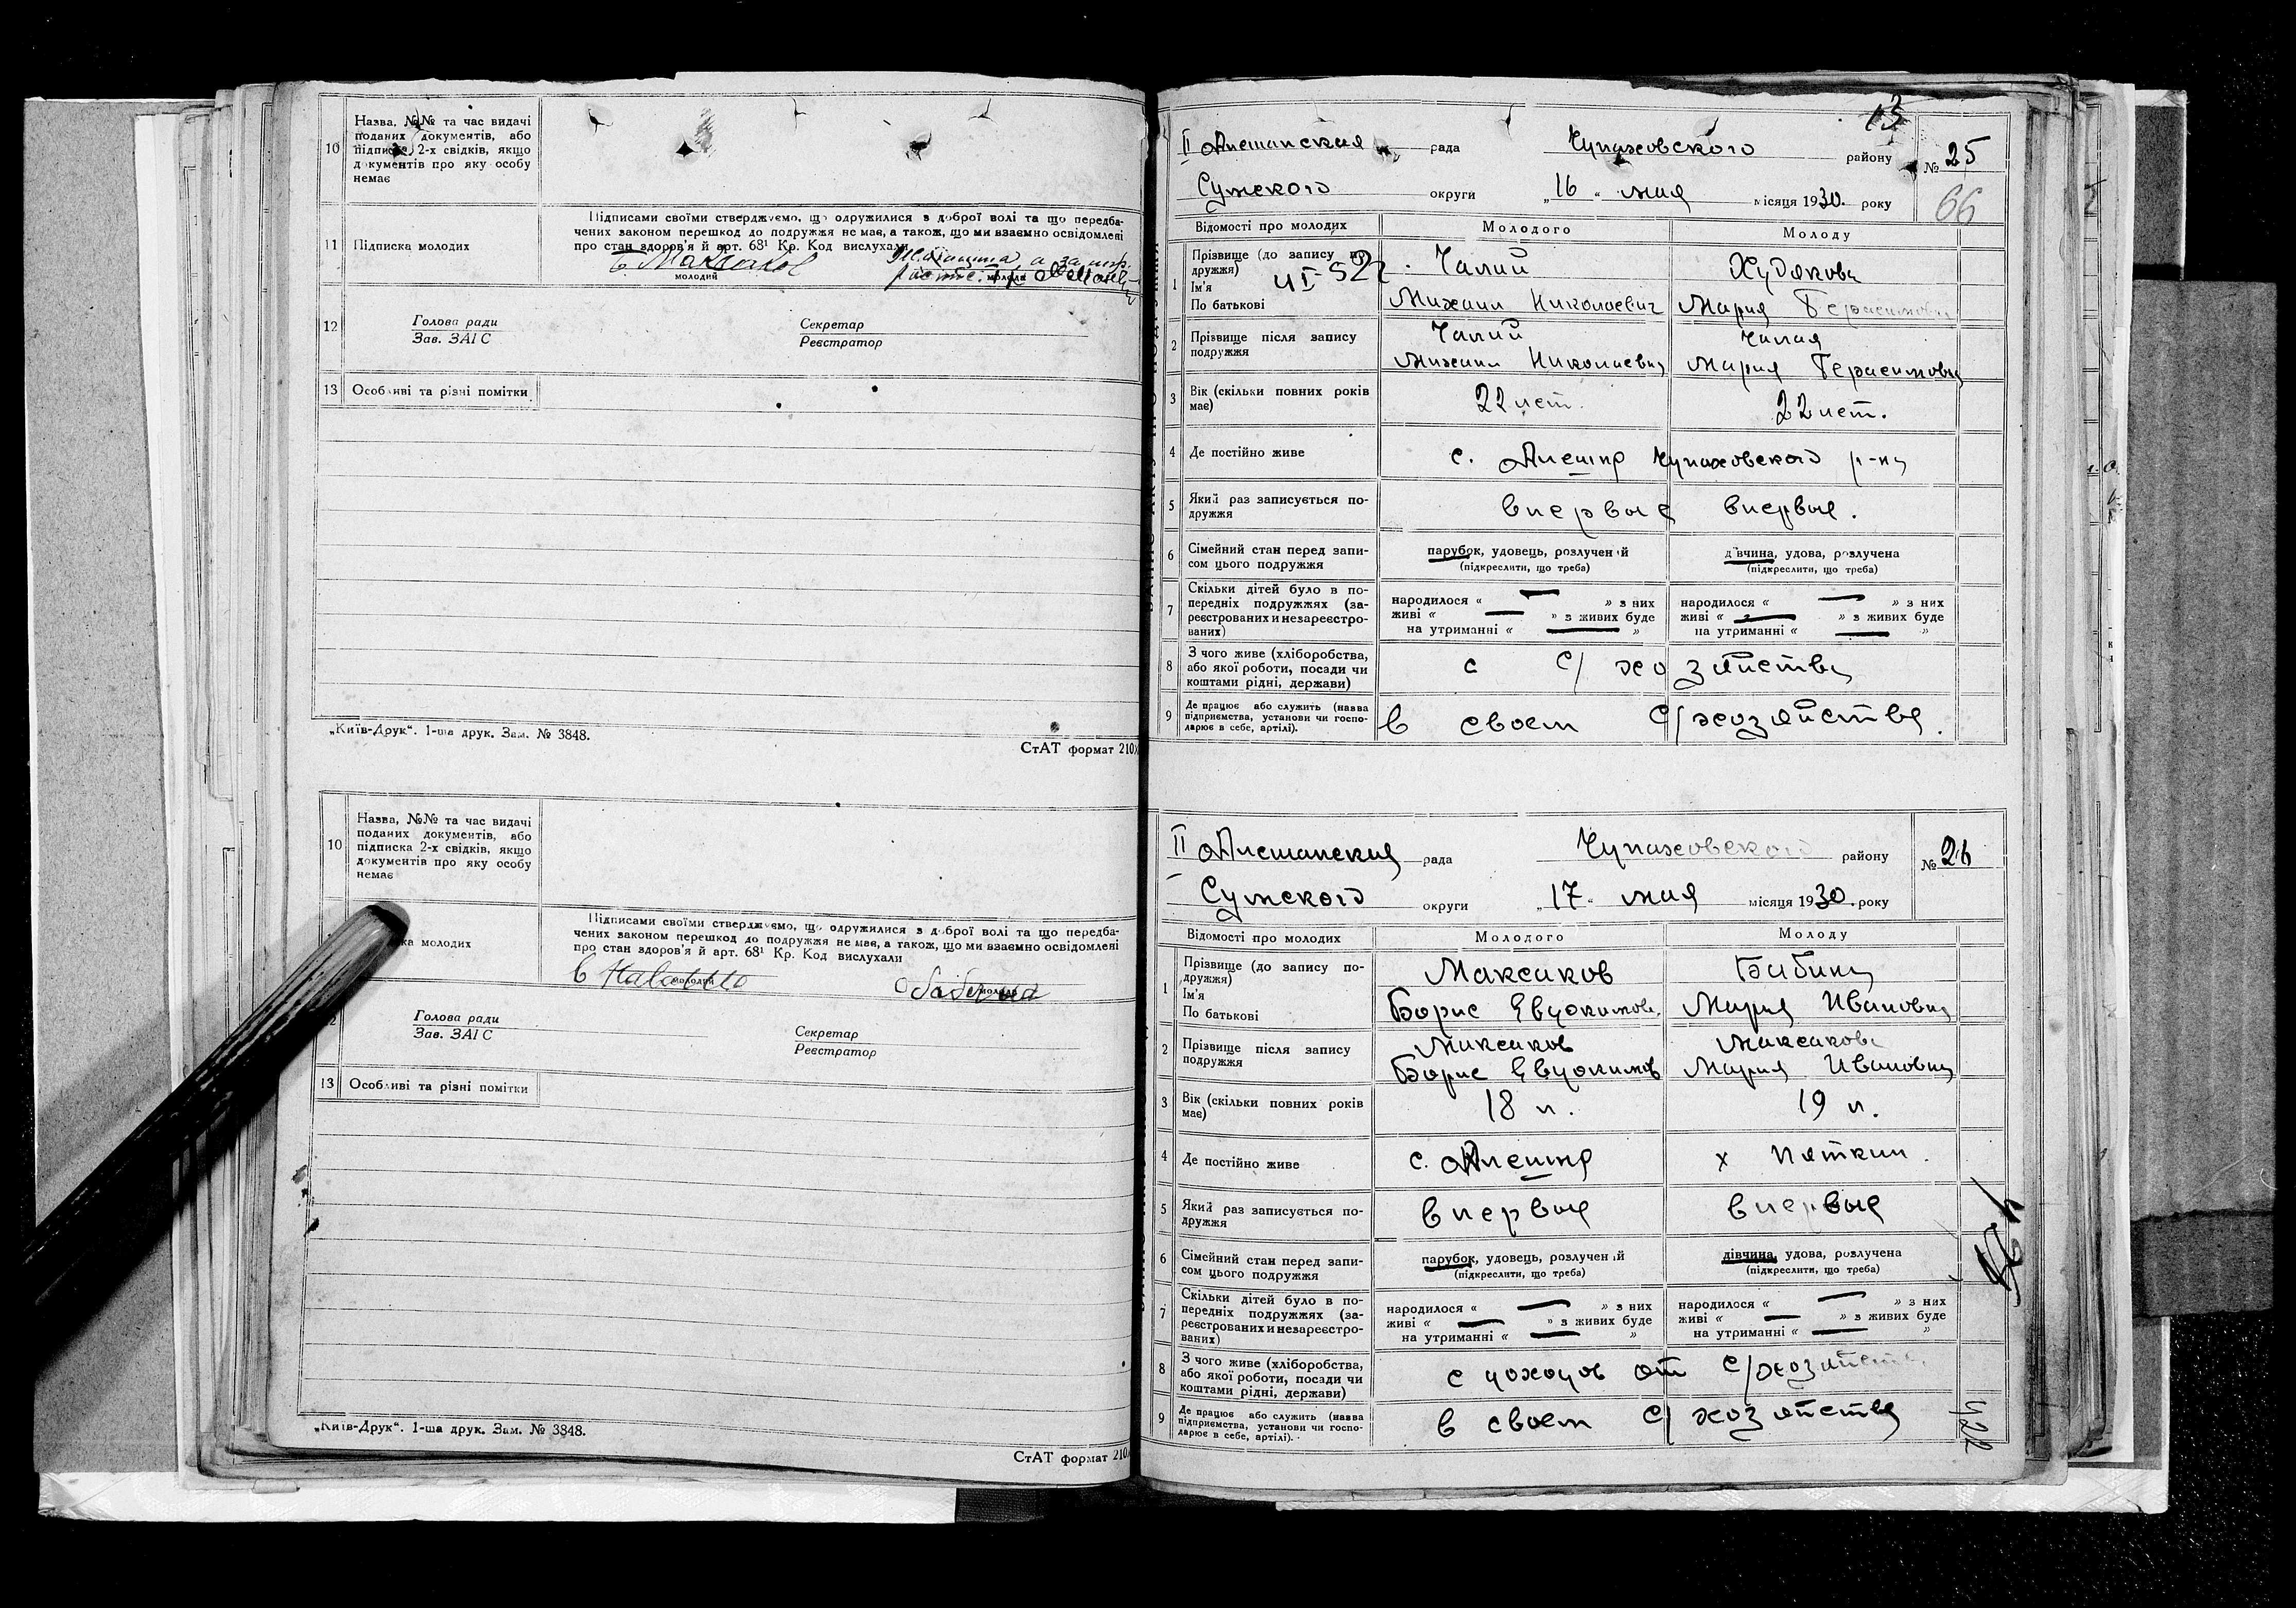 10
Назва, №№ та час видачі
поданих документів, або
підписка 2-х свідків, якщо
документів про яку особу
немає
11
Підписка молодих
Підписами своїми стверджуємо, що одружилися з доброї волі та що передба-
чених законом перешкод до подружжя не має, а також, що ми взаємно освідомлені
про стан здоров'я й арт. 68¹ Кр. Код вислухали
Б. Максаков
молодий
молода
12
Голова ради
Зав. ЗАГС
Секретар
Реєстратор
13
Особливі та різні помітки
„Київ-Друк“. 1-ша друк. Зам. № 3848.
СтАТ формат 210
10
Назва, №№ та час видачі
поданих документів, або
підписка 2-х свідків, якщо
документів про яку особу
немає
ка молодих
Підписами своїми стверджуємо, що одружилися з доброї волі та що передба-
чених законом перешкод до подружжя не має, а також, що ми взаємно освідомлені
про стан здоров'я й арт. 68¹ Кр. Код вислухали
молодий
молода
2
Голова ради
Зав. ЗАГС
Секретар
Реєстратор
13
Особливі та різні помітки
„Київ-Друк“. 1-ша друк. Зам. № 3848.
СтАТ формат 210
13
II Алешанская рада Чупаховского району № 25
Сумского округи „16“ мая місяця 1930. року
66
Відомості про молодих
Молодого
Молоду
1
Прізвище (до запису по-
дружжя)
Ім'я
По батькові
Чалий
Худякова
Михаил Николаевич
Мария Герасимовна
2
Прізвище після запису
подружжя
Чалий
Чалая
Михаил Николаевич
Мария Герасимовна
3
Вік (скільки повних років
має)
22 лет.
22 лет.
4
Де постійно живе
с. Алешня Чупаховского р-на
5
Який раз записується по-
дружжя
впервые
впервые.
6
Сімейний стан перед запи-
сом цього подружжя
парубок, удовець, розлучений
(підкреслити, що треба)
дівчина, удова, розлучена
(підкреслити, що треба)
7
Скільки дітей було в по-
передніх подружжях (за-
реєстрованих и незареєстро-
ваних)
народилося « — » з них
живі « — » з живих буде
на утриманні « — »
народилося « — » з них
живі « — » з живих буде
на утриманні « — »
8
З чого живе (хліборобства,
або якої роботи, посади чи
коштами рідні, держави)
с с/хозяйства
9
Де працює або служить (назва
підприємства, установи чи госпо-
дарює в себе, артілі).
в своем с/хозяйстве.
II Алешанская рада Чупаховского району № 26
Сумского округи „17“ мая місяця 1930. року
Відомості про молодих
Молодого
Молоду
1
Прізвище (до запису по-
дружжя)
Ім'я
По батькові
Максаков
Бабина
Борис Евдокимов.
Мария Ивановна
2
Прізвище після запису
подружжя
Максаков
Максакова
Борис Евдокимов
Мария Ивановна
3
Вік (скільки повних років
має)
18 л.
19 л.
4
Де постійно живе
с. Алешня
х Пяткин.
5
Який раз записується по-
дружжя
впервые
впервые
6
Сімейний стан перед запи-
сом цього подружжя
парубок, удовець, розлучений
(підкреслити, що треба)
дівчина, удова, розлучена
(підкреслити, що треба)
7
Скільки дітей було в по-
передніх подружжях (за-
реєстрованих и незареєстро-
ваних)
народилося « — » з них
живі « — » з живих буде
на утриманні « — »
народилося « — » з них
живі « — » з живих буде
на утриманні « — »
8
З чого живе (хліборобства,
або якої роботи, посади чи
коштами рідні, держави)
с доходов от с/хозяйств.
9
Де працює або служить (назва
підприємства, установи чи госпо-
дарює в себе, артілі).
в своем с/хозяйстве
422